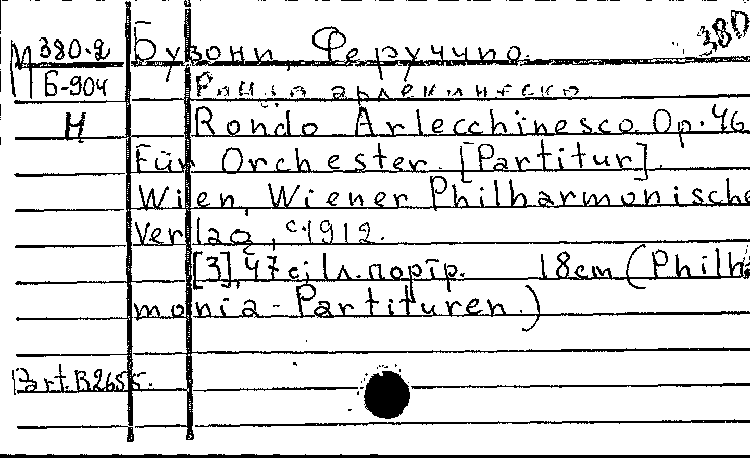 380
М 380.2 Бузони, Феручино.
Б-904 Рондо арлекинеско
Н Rondo Arlecchinesco Op. 46
Für Orchester. [Partitur].
Wien, Wiener Philharmonische
Verlag, c1912.
[3], 47 с; 1 л. портр. 18cm (Philh
monia-Partituren.)
Part. B 2655.